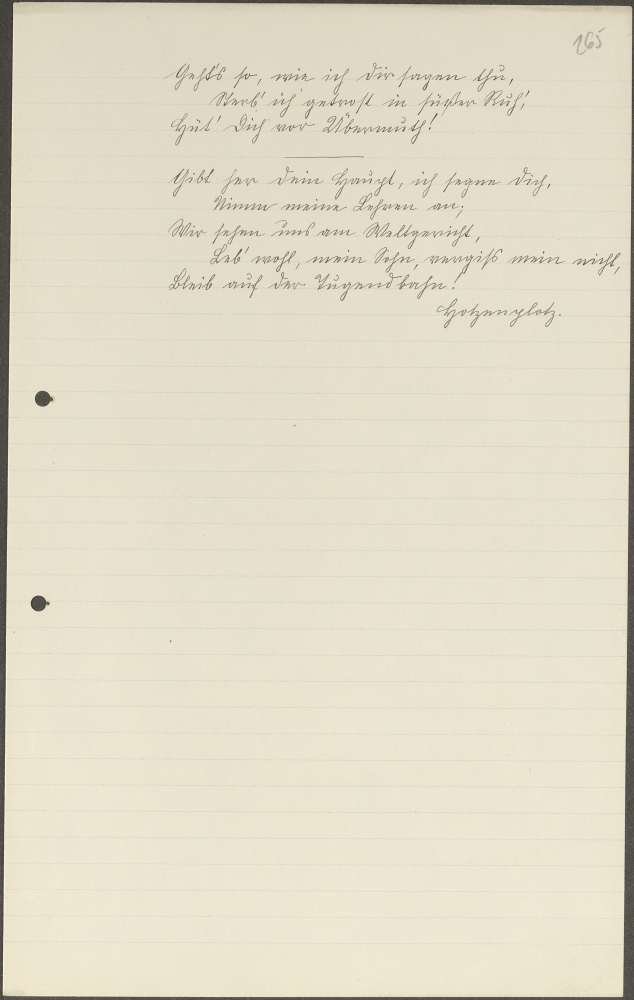 165
Geht's so, wie ich Dir sagen thu,
Sterb' ich getrost in süßer Ruh,'
Hüt' Dich vor Übermuth!
Gibt her dein Haupt, ich segne Dich,
Nimm meine Lehren an;
Wir sehen uns am Weltgericht,
Leb' wohl, mein Sohn, vergiss mein nicht,
Bleib auf der Tugendbahn!
Hotzenplotz.